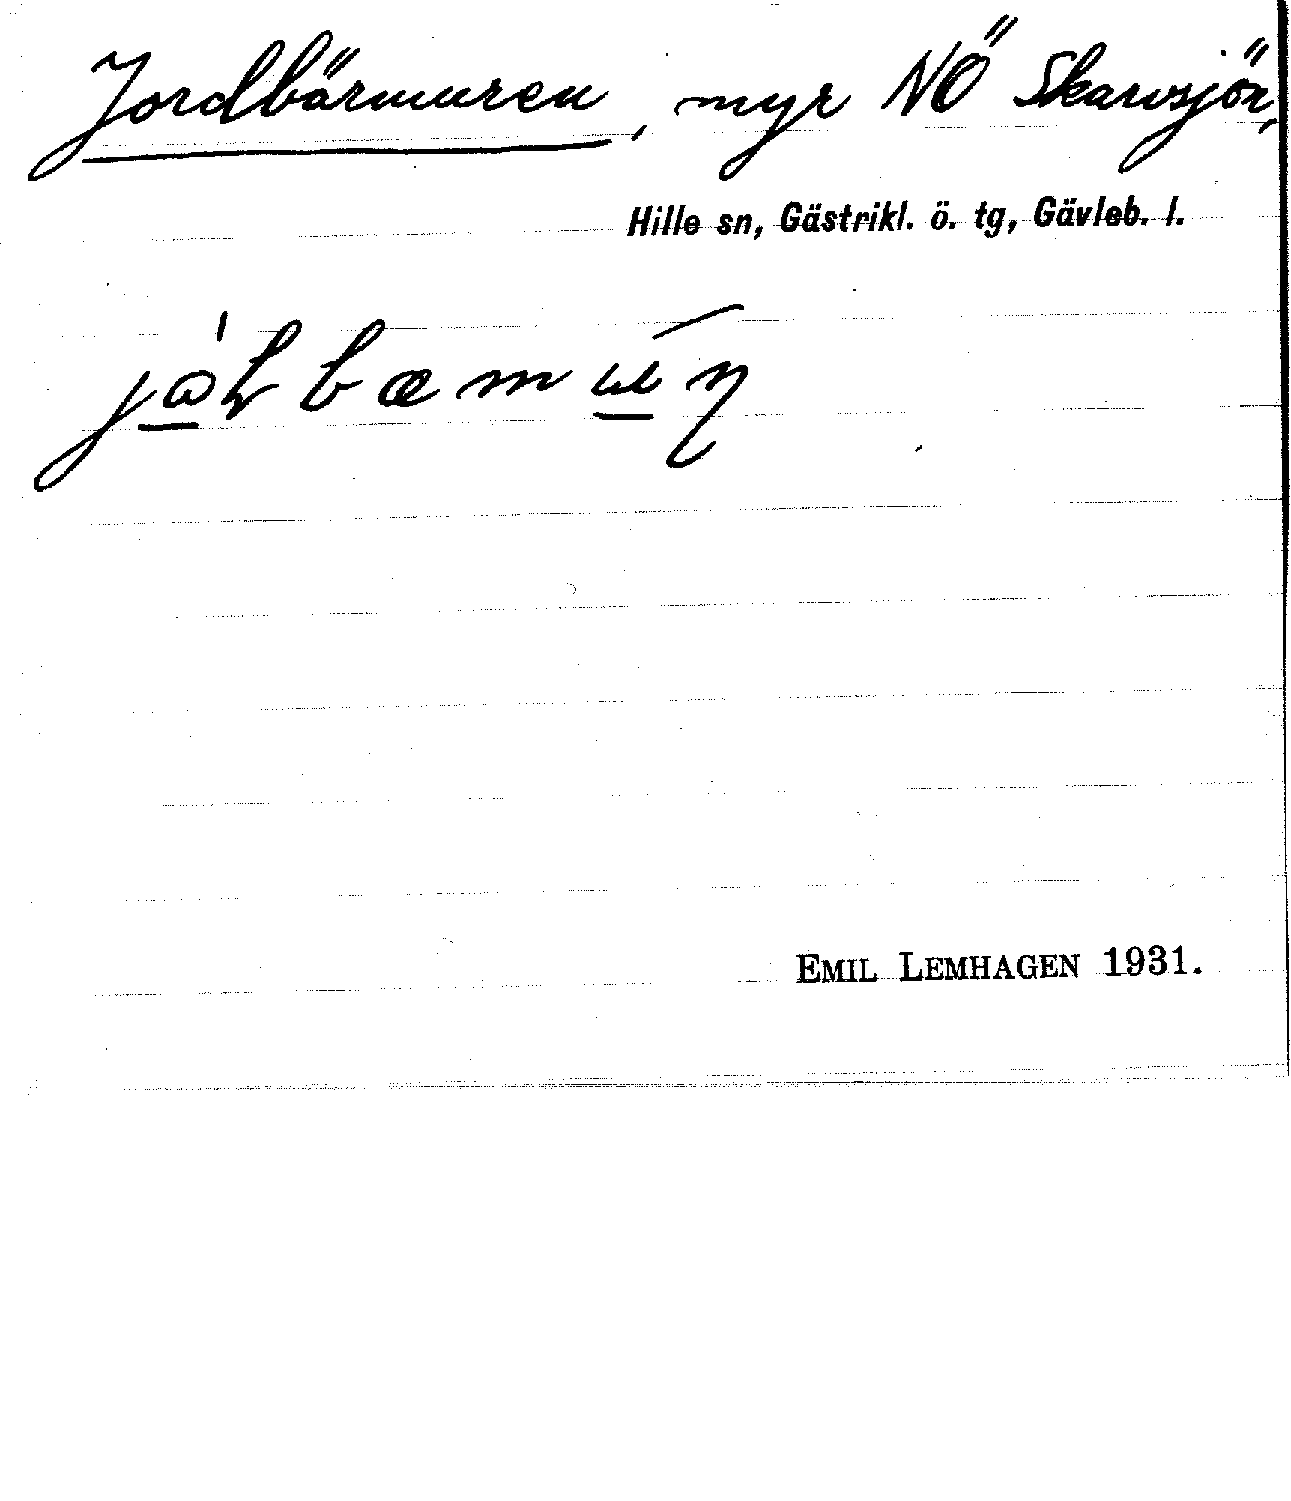 Jordbärmuren, myr NÖ Skarvsjön,
Hille sn, Gästrikl. ö. tg, Gävleb. l.
EMIL LEMHAGEN 1931.